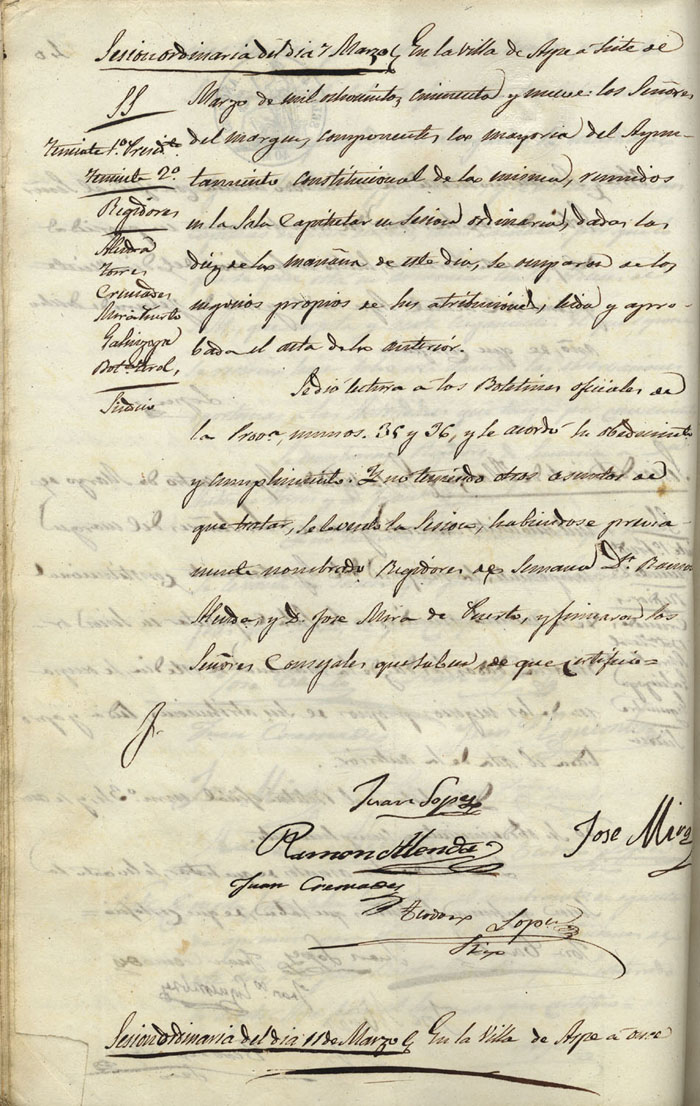 Sesion ordinaria del dia 7 Marzo En la Villa de Aspe a siete de
SS
Teniente 1º Presidte
Teniente 2º
Regidores
Alenda
Torres
Cremades
Mira Puerto
Galinzoga
Bot
Sindico
Marzo de mil ochocientos cincuenta y nueve: los Señores
del margen, componentes la mayoria del Ayun-
tamiento constitucional de la misma, reunidos
en la Sala Capitular en Sesion ordinaria, dadas las
diez de la mañana de este dia, se ocuparon de los
negocios propios de sus atribuciones, leida y apro-
bada el acta de la anterior.
Se dio lectura a los Boletines oficiales de
la Prova numos. 35 y 36, y se acordó su obedecimiento
y cumplimiento. Y no teniendo otros asuntos de
que tratar, se levantó la Sesion, habiendose previa-
mente nombrado Regidores de Semana Dn. Ramon
Alenda, y D. Jose Mira de Puerto, y firmaron los
Señores Consejales que saben, de que certifico=
Juan Lopez
Ramon Alenda
Jose Mira
Juan Cremades
Lopez
Srio
Sesion Ordinaria del dia 11 de Marzo En la Villa de Aspe a once